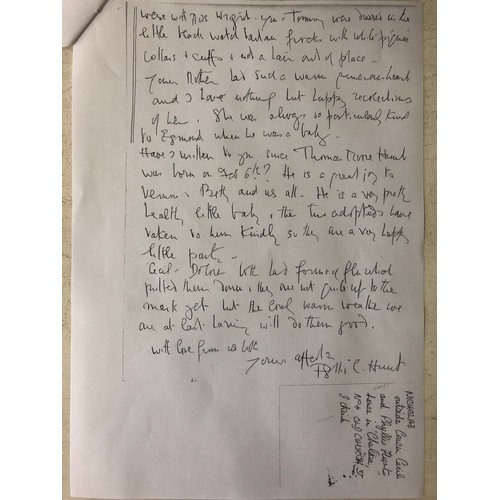 were with Miss Wright. You & Tommy were dressed in the
little black watch tartan frocks with white piqué
collars & cuffs & not a hair out of place -
Your Mother had such a warm generous heart
and I have nothing but happy recollections
of her. She was always so particularly kind
to Egmond when he was a baby -
Have I written to you since Thomas Hunt
was born on Feb 6th? He is a great joy to
& Betty and us all. He is a very pretty
healthy little baby & the two adopteds have
taken to him kindly so they are a very happy
little party -
Cecil & both had forms of flu which
pulled them down & they are not quite up to the
mark yet but the warm weather we
are at last having will do them good.
with love from us both
Yours affect'ly
Hunt
NICHOLAS
outside Cousin Cecil
and Phyllis Hunt's
house in Chelsea,
No 4 OLD CHURCH ST
I think